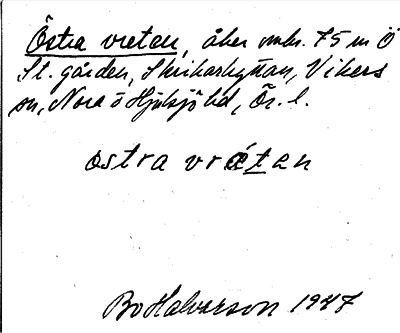 Östra vreten, åker omkr. 75 m Ö
St. gården, Skrikarhyttan, Vikers
sn, Nora o Hjulsjö bd, Ör. l.
östra vrǽtɛn
Bo Halvarson 1947